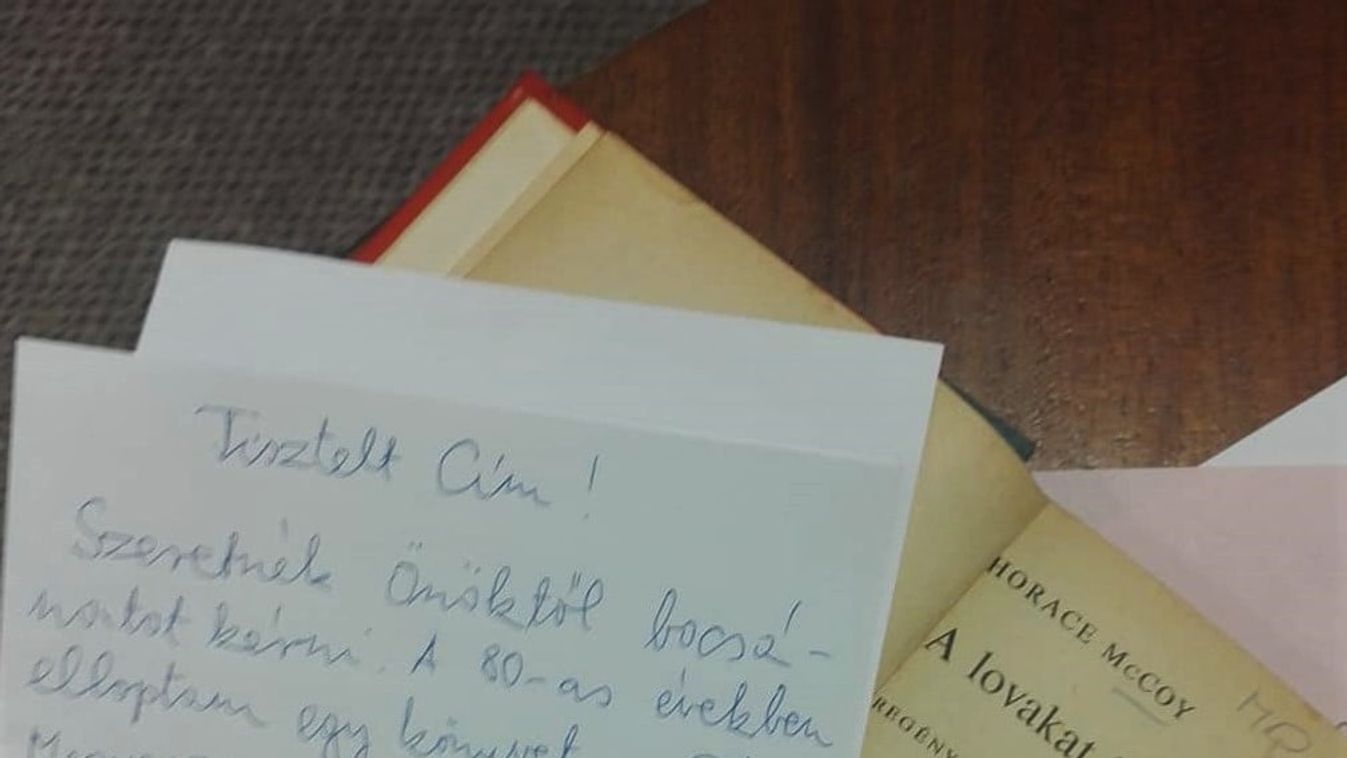 Tisztelt Cím!
Szeretnék Önöktől bocsá-
natot kérni. A 80-as években
elloptam egy könyvet
HORACE McCOY
A lovakat
REGÉNY